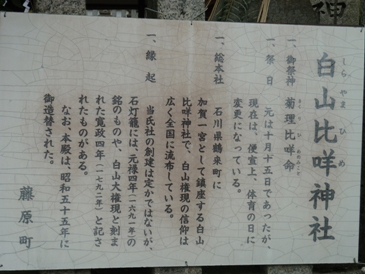 白山比咩神社
しらやまひめ
一、御祭神　菊理比咩命
一、祭日　元は十月十五日であったが、
現在は、便宜上、体育の日に
変更になっている。
一、総本社　石川県鶴来町に
加賀一宮として鎮座する白山
比咩神社で、白山権現の信仰は
広く全国に流布している。
一、縁起
当氏社の創建は定かではないが、
石灯籠には、元禄四年(一六九一)の
銘のものや、白山大権現と刻ま
れた寛政四年(一七九二年)と記さ
れたものがある。
なお、本殿は、昭和五十五年に
御造替された。
藤原町
神